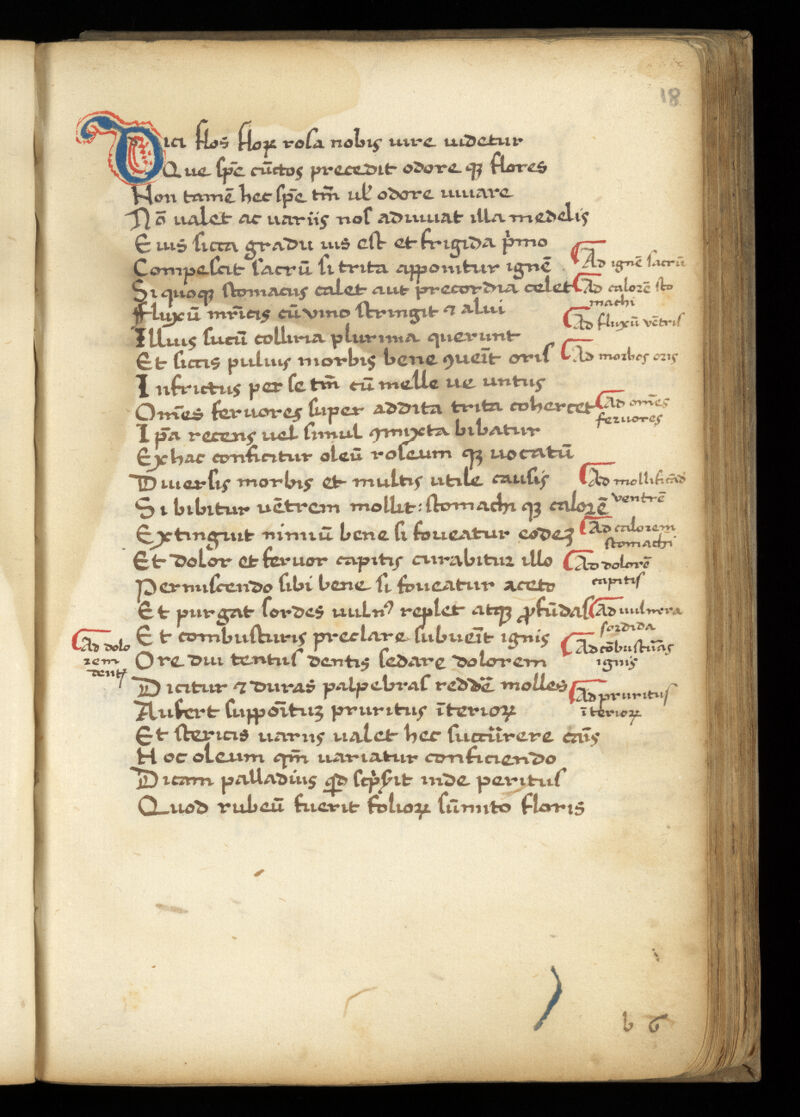 18
Dici flos floꝝ rosa nobis iure uidetur
Que spē cūctos precedit odore qꝫ flores
Non tamē hec spē tm̄ ul' odore iuuare
Nō ualet ac uariis nos adiuuat illa medelis
Eius sicca gradu uis est et frigida pͥmo
Compescit sacrū si trita apponitur ignē
Ad ignē sacrū
Si quoqꝫ stomacus calet aut precordia celet
Ad calorē sto
machi
Fluxū mr̄icis cū uino stringit ⁊ alui
Ad fluxū vētris
Illius sucū colliria plurima querunt
Et siccis puluis morbis bene ꝯueīt oris
Ad morbos oris
Infrictus per se tm̄ cū melle ue untus
Om̄es feruores super addita trita cohercet
Ad om̄es
feruores
Ip̄a recens uel simul ꝯmixta bibatur
Ex hac conficitur oleū roseum qꝫ uocatū
Diuersis morbis et multis utile causis
Ad mollificād
ventrē
Si bibitur uētrem mollit: stomachi qꝫ calorē
Extinguit nimiū bene si foueatur eodeꝫ
Ad calorem
stomachi
Et dolor et feruor capitis curabitur illo
Ad dolorē
capitis
Permiscendo sibi bene si foueatur aceto
Et purgat sordes uulnꝰ replet atqꝫ ꝓfūdas
Ad uulnera
sordida
Et combusturis preclare subueīt ignis
Ad dolo
rem
dentꝭ
Ad cōbustur̄as
ignis
Ore diu tentus dentis sedare dolorem
Dicitur ⁊ duras palpebras reddē molles
Ad pruritus
īterioꝝ
Aufert suppoītuꝫ pruritus īterioꝝ
Et stericis uariis ualet hec succūrere cāis
Hoc oleum qm̄ uariatur conficiendo
Dicam palladiuis qd̄ scpͥsit inde peritus
Quod rubeū fuerit folioꝝ sūmito floris
b 6